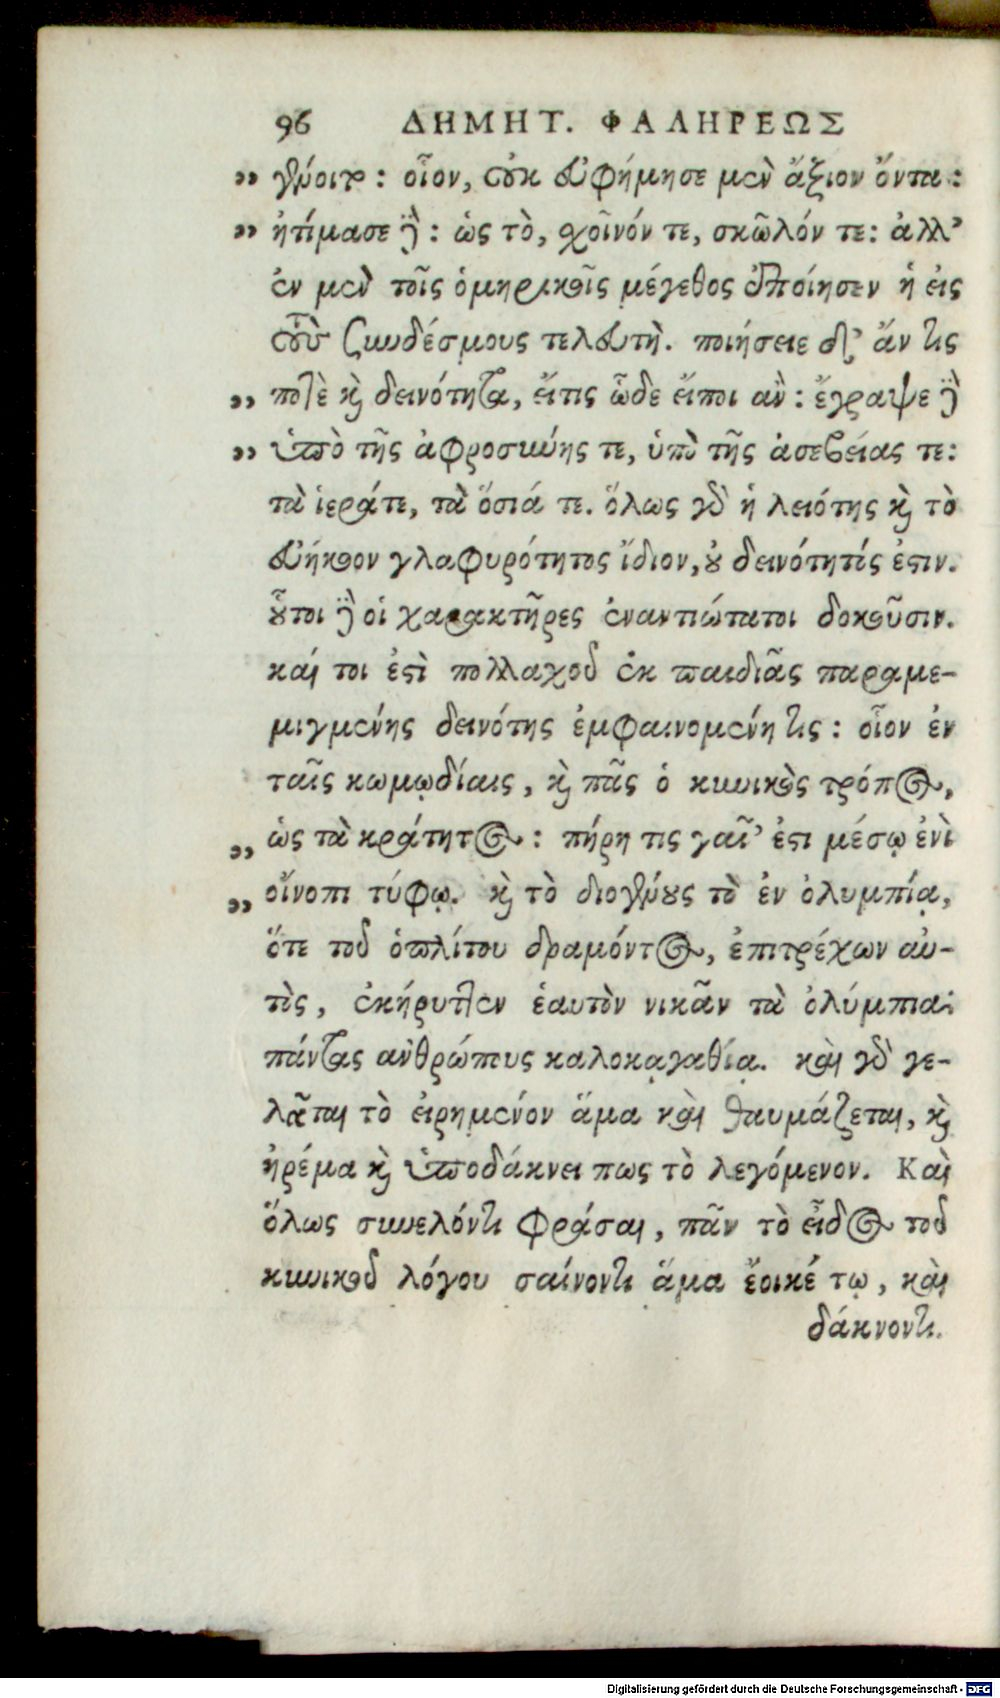 96 ΔΗΜΗΤ. ΦΑΛΗΡΕΩΣ
„ γένοιτο : οἷον, οὐκ εὐφήμησε μὲν ἄξιον ὄντα :
„ ἠτίμασε δὲ : ὡς τὸ, σχοῖνόν τε, σκῶλόν τε : ἀλλ'
ἐν μὲν τοῖς ὁμηρικοῖς μέγεθος ἐποίησεν ἡ εἰς
τοὺς συνδέσμους τελευτὴ. ποιήσειε δ' ἄν τις
„ ποτὲ καὶ δεινότητα, εἴτις ὧδε εἴποι αν : ἔγραψε δὲ
„ ὑπὸ τῆς ἀφροσύνης τε, ὑπὸ τῆς ἀσεβείας τε :
τὰ ἱεράτε, τὰ ὅσιά τε. ὅλως γὰρ ἡ λειότης καὶ τὸ
εὐήκοον γλαφυρότητος ἴδιον, οὐ δεινότητίς ἐστιν.
οὗτοι δὲ οἱ χαρακτῆρες ἐναντιώτατοι δοκοῦσιν.
καί τοι ἐστὶ πολλαχοῦ ἐκ παιδιᾶς παραμε-
μιγμένης δεινότης ἐμφαινομένη τις : οἷον ἐν
ταῖς κωμῳδίαις, καὶ πᾶς ὁ κυνικὸς τρόπος,
„ ὡς τὰ κράτητος : πήρη τις γαῖ' ἐστι μέσῳ ἐνὶ
„ οἴνοπι τύφῳ. καὶ τὸ διογένους τὸ ἐν ὀλυμπίᾳ,
ὅτε τοῦ ὁπλίτου δραμόντος, ἐπιτρέχων αὐ-
τὸς, ἐκήρυττεν ἑαυτὸν νικᾶν τὰ ὀλύμπια
πάντας ανθρώπους καλοκᾳγαθίᾳ. καὶ γὰρ γε-
λᾶται τὸ εἰρημένον ἅμα καὶ θαυμάζεται, καὶ
ἠρέμα καὶ ὑποδάκνει πως τὸ λεγόμενον. Καὶ
ὅλως συνελόντι φράσαι, πᾶν τὸ εἶδος τοῦ
κυνικοῦ λόγου σαίνοντι ἅμα ἔοικέ τῳ, καὶ
δάκνοντι.
Digitalisierung gefördert durch die Deutsche Forschungsgemeinschaft - DFG